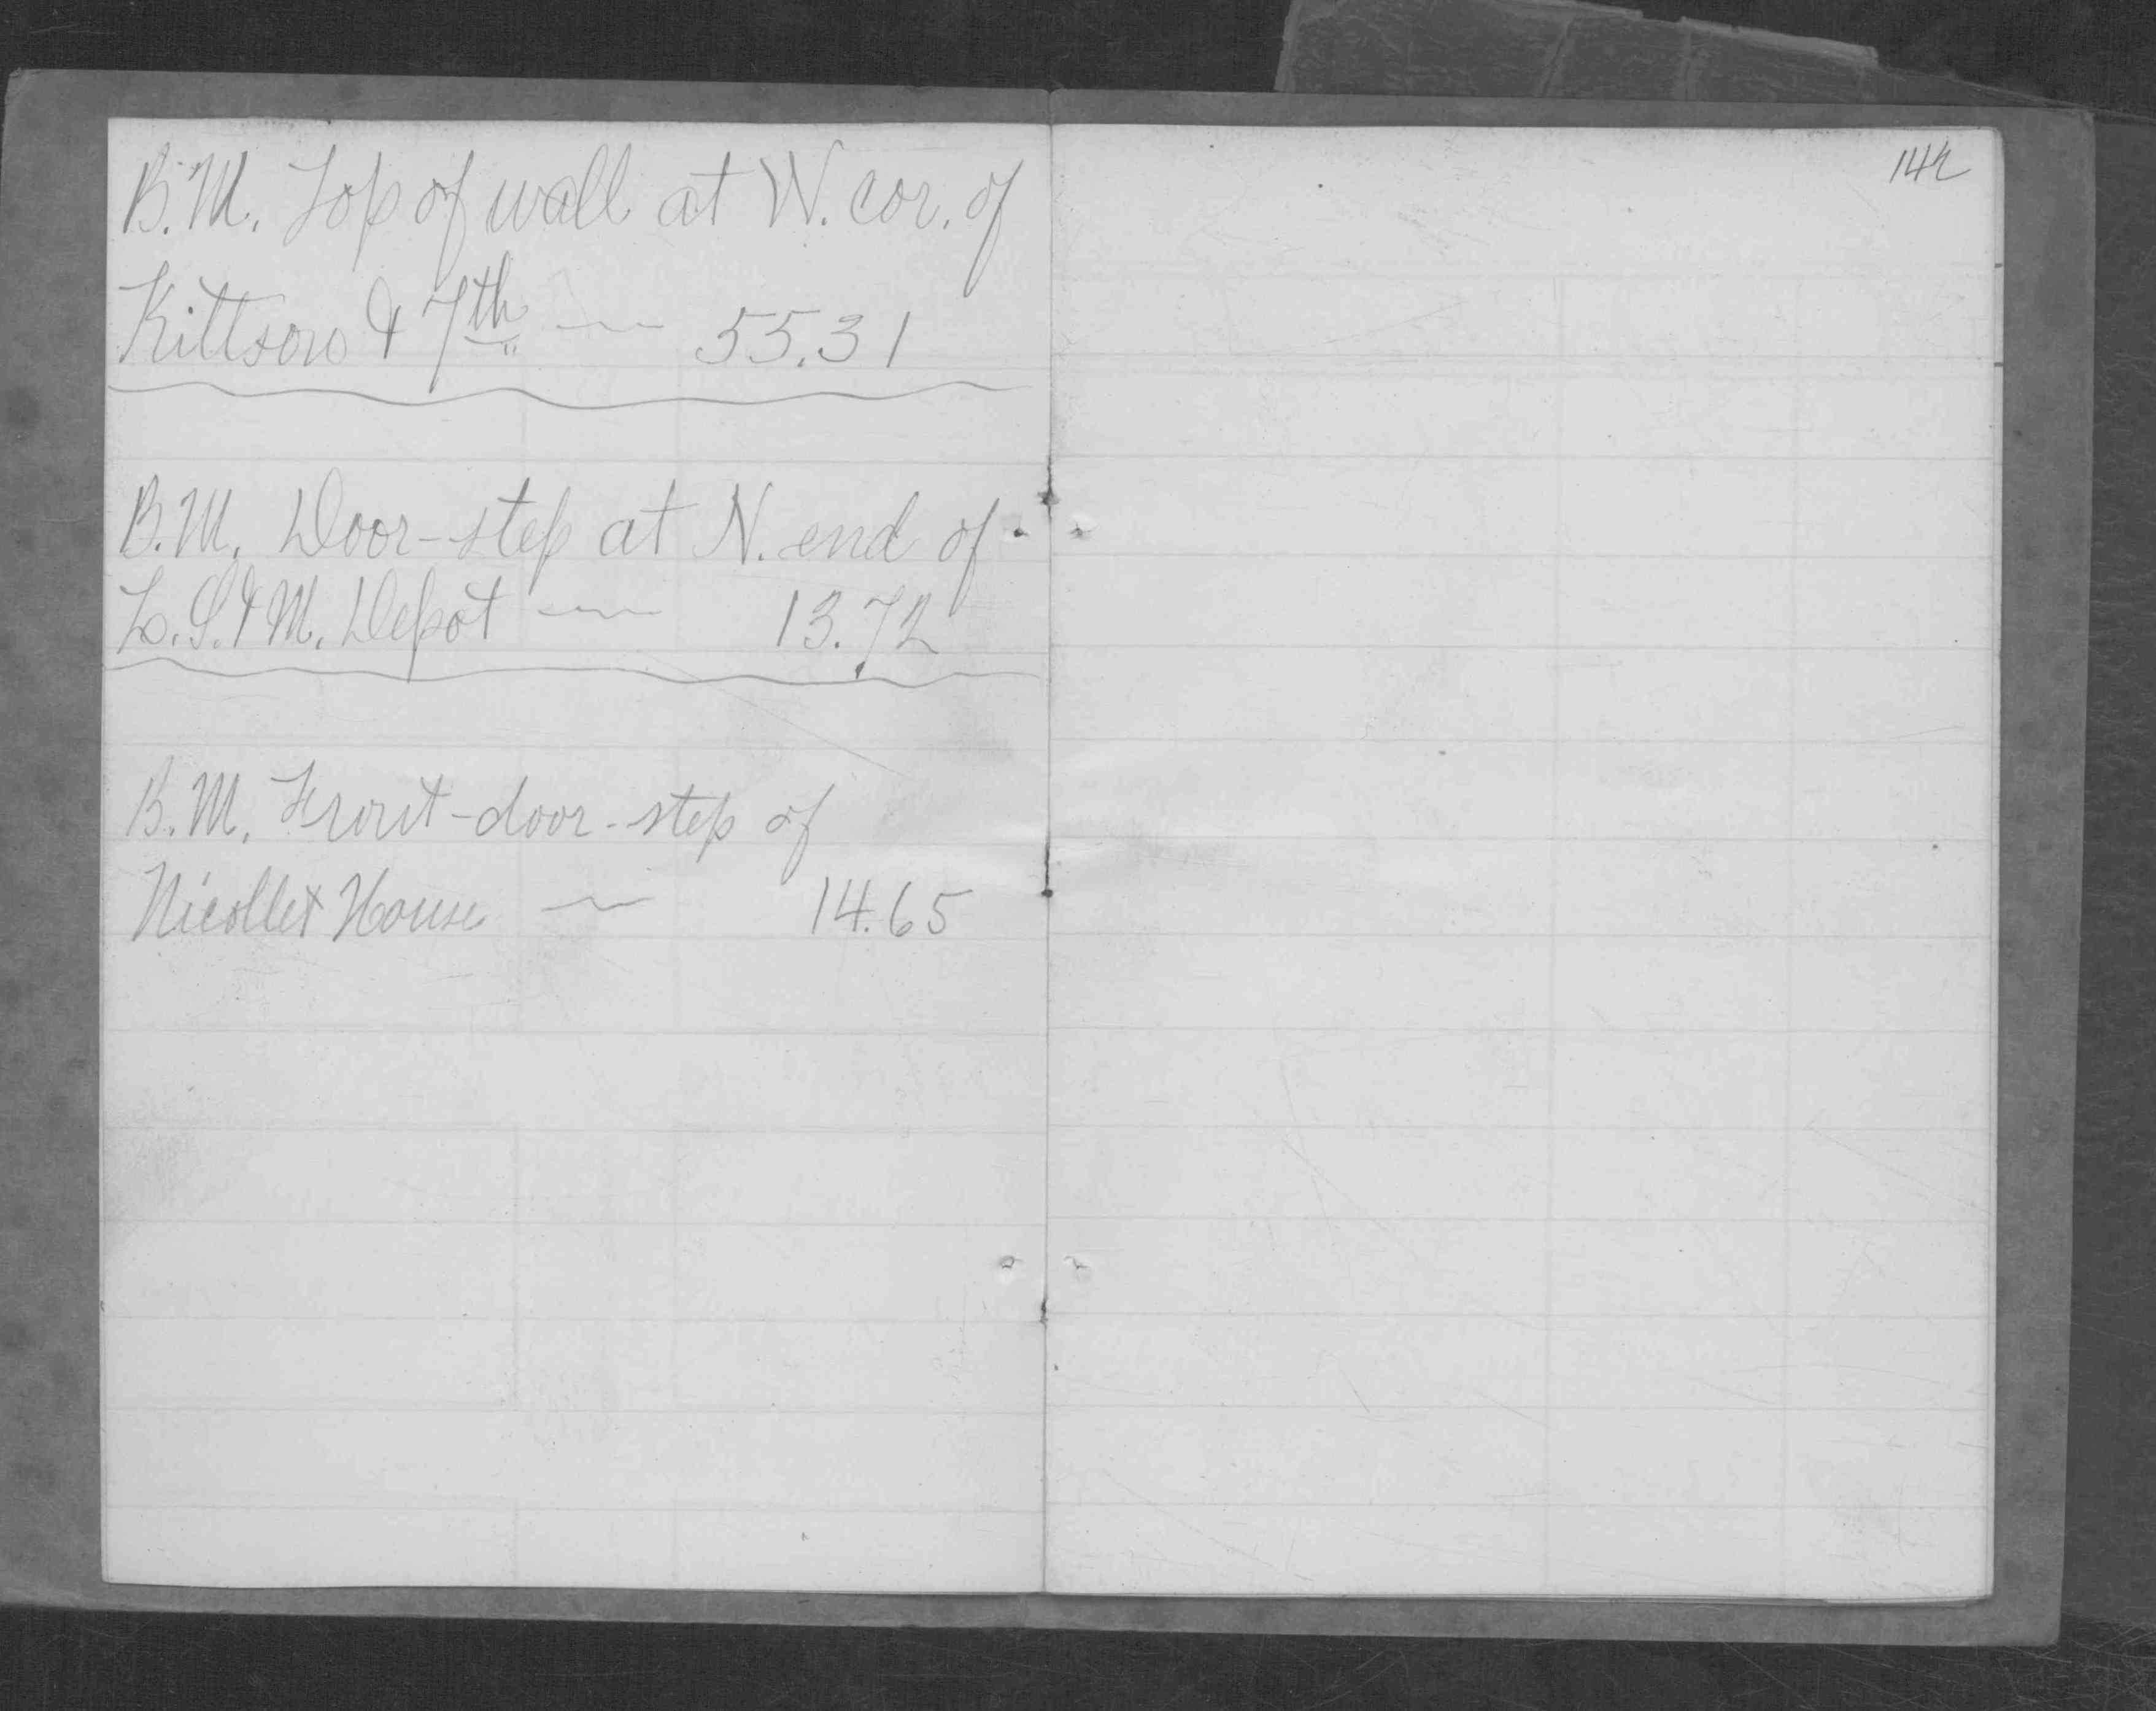 B.M. Top of wall at W. cor. of
Kittson & 7th — 55.31
B.M. Door-step at N. end of
L.S.& M. Depot — 13.72
B.M. Front-door-step of
Nicollet House — 14.65
142